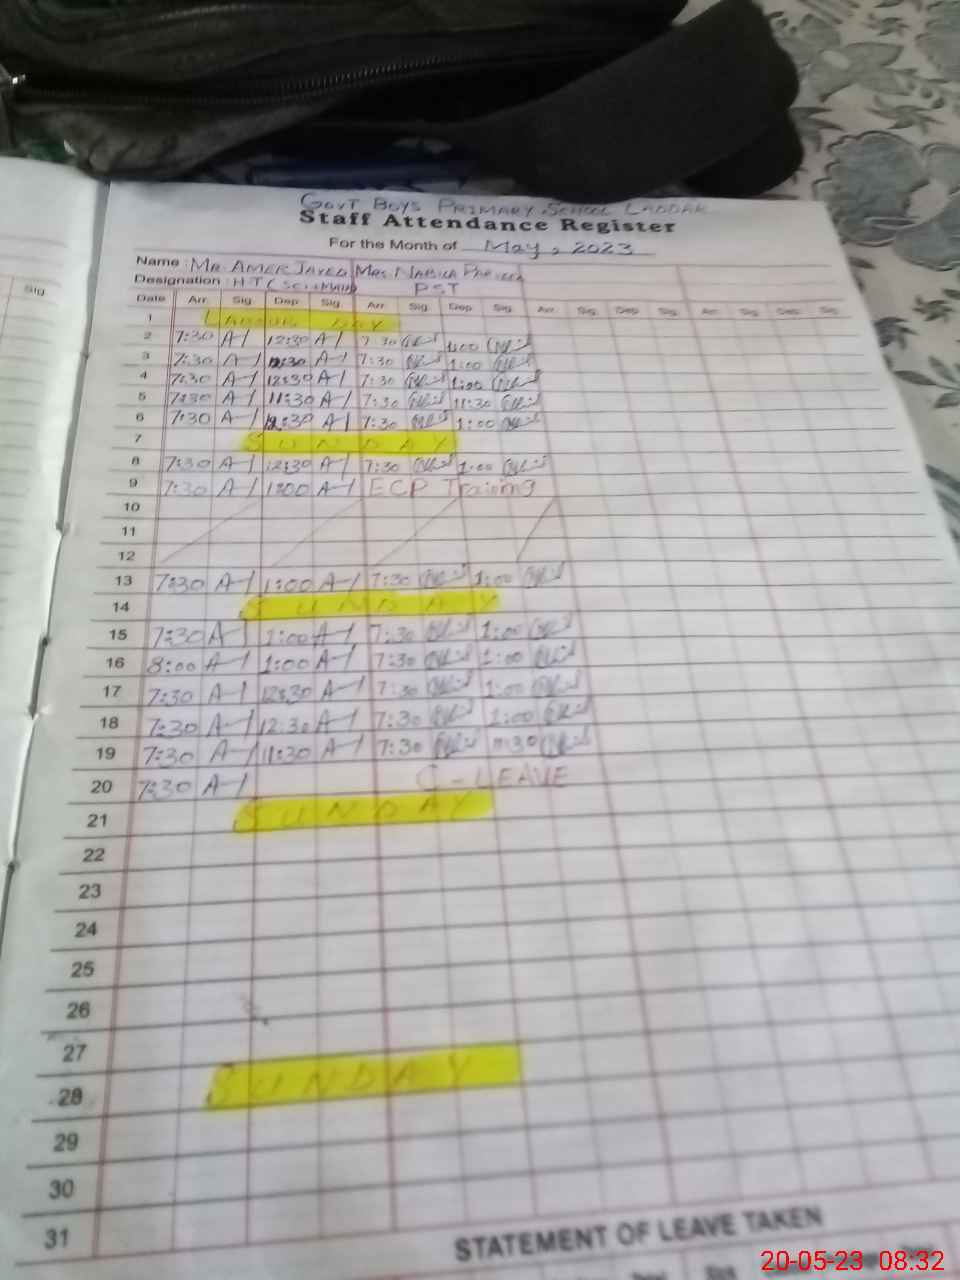 GOVT BOYS PRIMARY SCHOOL LADDAR
Staff Attendance Register
For the Month of May, 2023
Name : MR. AMER JAVED MRS NABILA PARVEEN
Designation : HT PST
Sig
Date Arr. Sig. Dep. Sig. Arr. Sig. Dep. Sig. Arr. Sig. Dep. Sig. Arr. Sig. Dep. Sig.
1 LABOUR DAY
2 7:30 12:30 7:30 1:00
3 7:30 12:30 7:30 1:00
4 7:30 12:30 7:30 1:00
5 7:30 11:30 7:30 11:30
6 7:30 12:30 7:30 1:00
7 SUNDAY
8 7:30 12:30 7:30 1:00
9 7:30 1:00 ECP Training
10
11
12
13 7:30 1:00 7:30 1:00
14 SUNDAY
15 7:30 1:00 7:30 1:00
16 8:00 1:00 7:30 1:00
17 7:30 12:30 7:30 1:00
18 7:30 12:30 7:30 1:00
19 7:30 11:30 7:30 11:30
20 7:30 C-LEAVE
21 SUNDAY
22
23
24
25
26
27
28 SUNDAY
29
30
31
STATEMENT OF LEAVE TAKEN
20-05-23 08:32